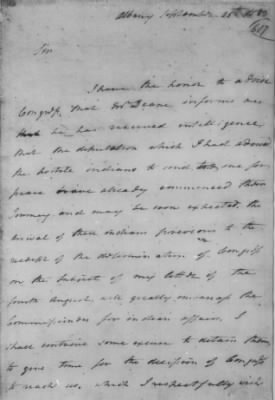 Albany September
617
Sir
I have the honor to advise
Congress that Mr Deane informs me
he has received intelligence
that the deputation which I had advised
the hostile indians to send to sue for
peace have already commenced their
Journey and may be soon expected. the
arrival of these indians previous to the
receipt of the determination of Congress
on the subject of my letter of the
fourth August, will greatly embarrass the
Commissioners for indian affairs. I
shall contrive some excuse to detain them,
to give time for the decision of Congress
to reach us, which I respectfully wish